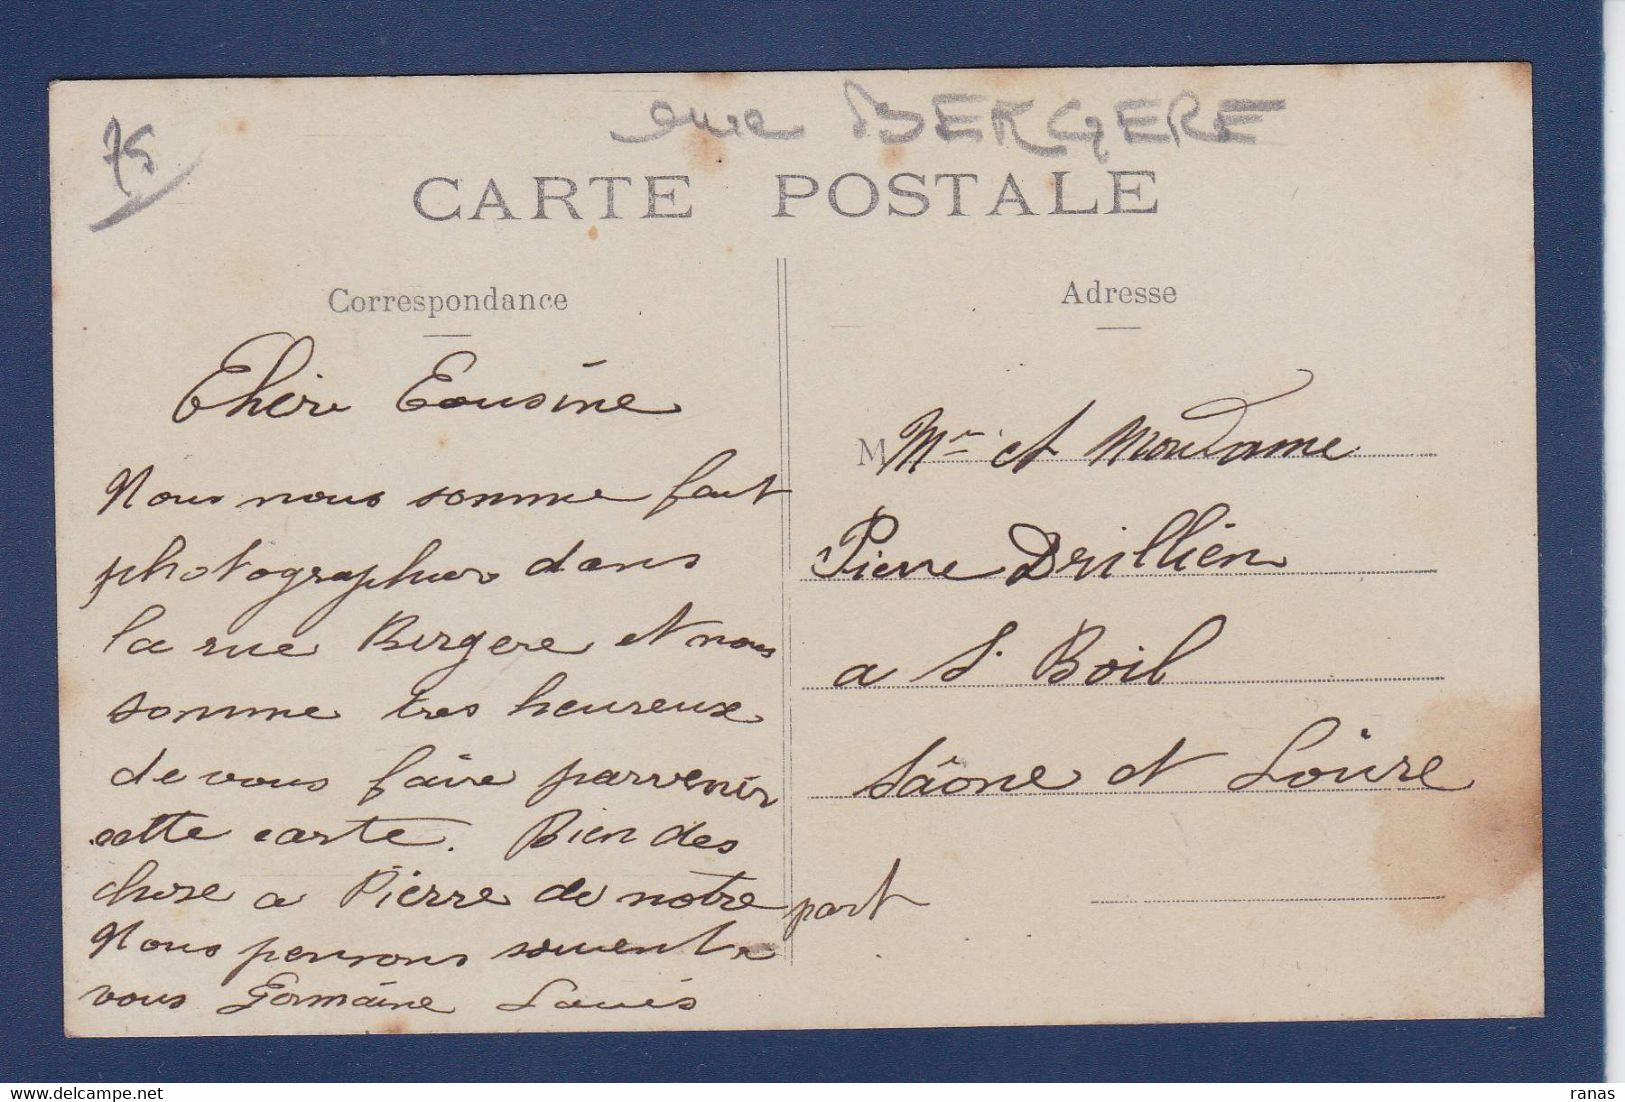 75
rue BERGERE
CARTE POSTALE
Correspondance
Chère Cousine
Nous nous somme fait
photographier dans
la rue Bergere et nous
somme tres heureux
de vous faire parvenir
cette carte. Bien des
chose a Pierre de notre part
Nous pensons souvent a
vous Germaine Louis
Adresse
M Mr et Madame
Pierre Drillien
a St Boil
Saône et Loire
ranas